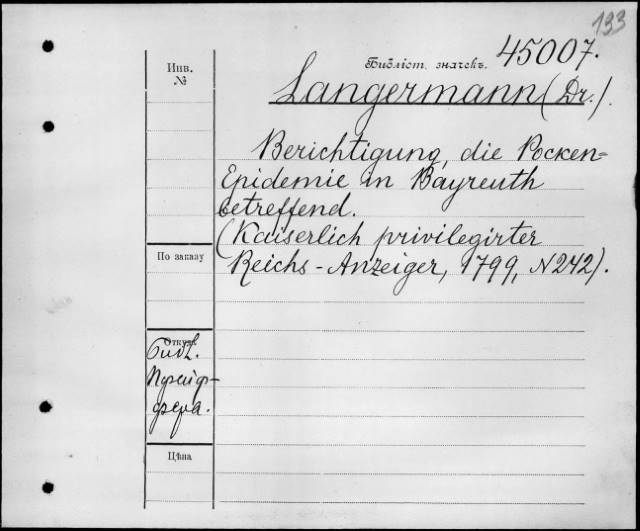 133
Инв.
№
Библіот. значекъ. 45007.
Langermann (Dr.).
Berichtigung, die Pocken=
Epidemie in Bayreuth
betreffend.
(Kaiserlich privilegirter
Reichs-Anzeiger, 1799, N242).
По заказу
Откуда
Библ.
Пфейф-
фера.
Цѣна